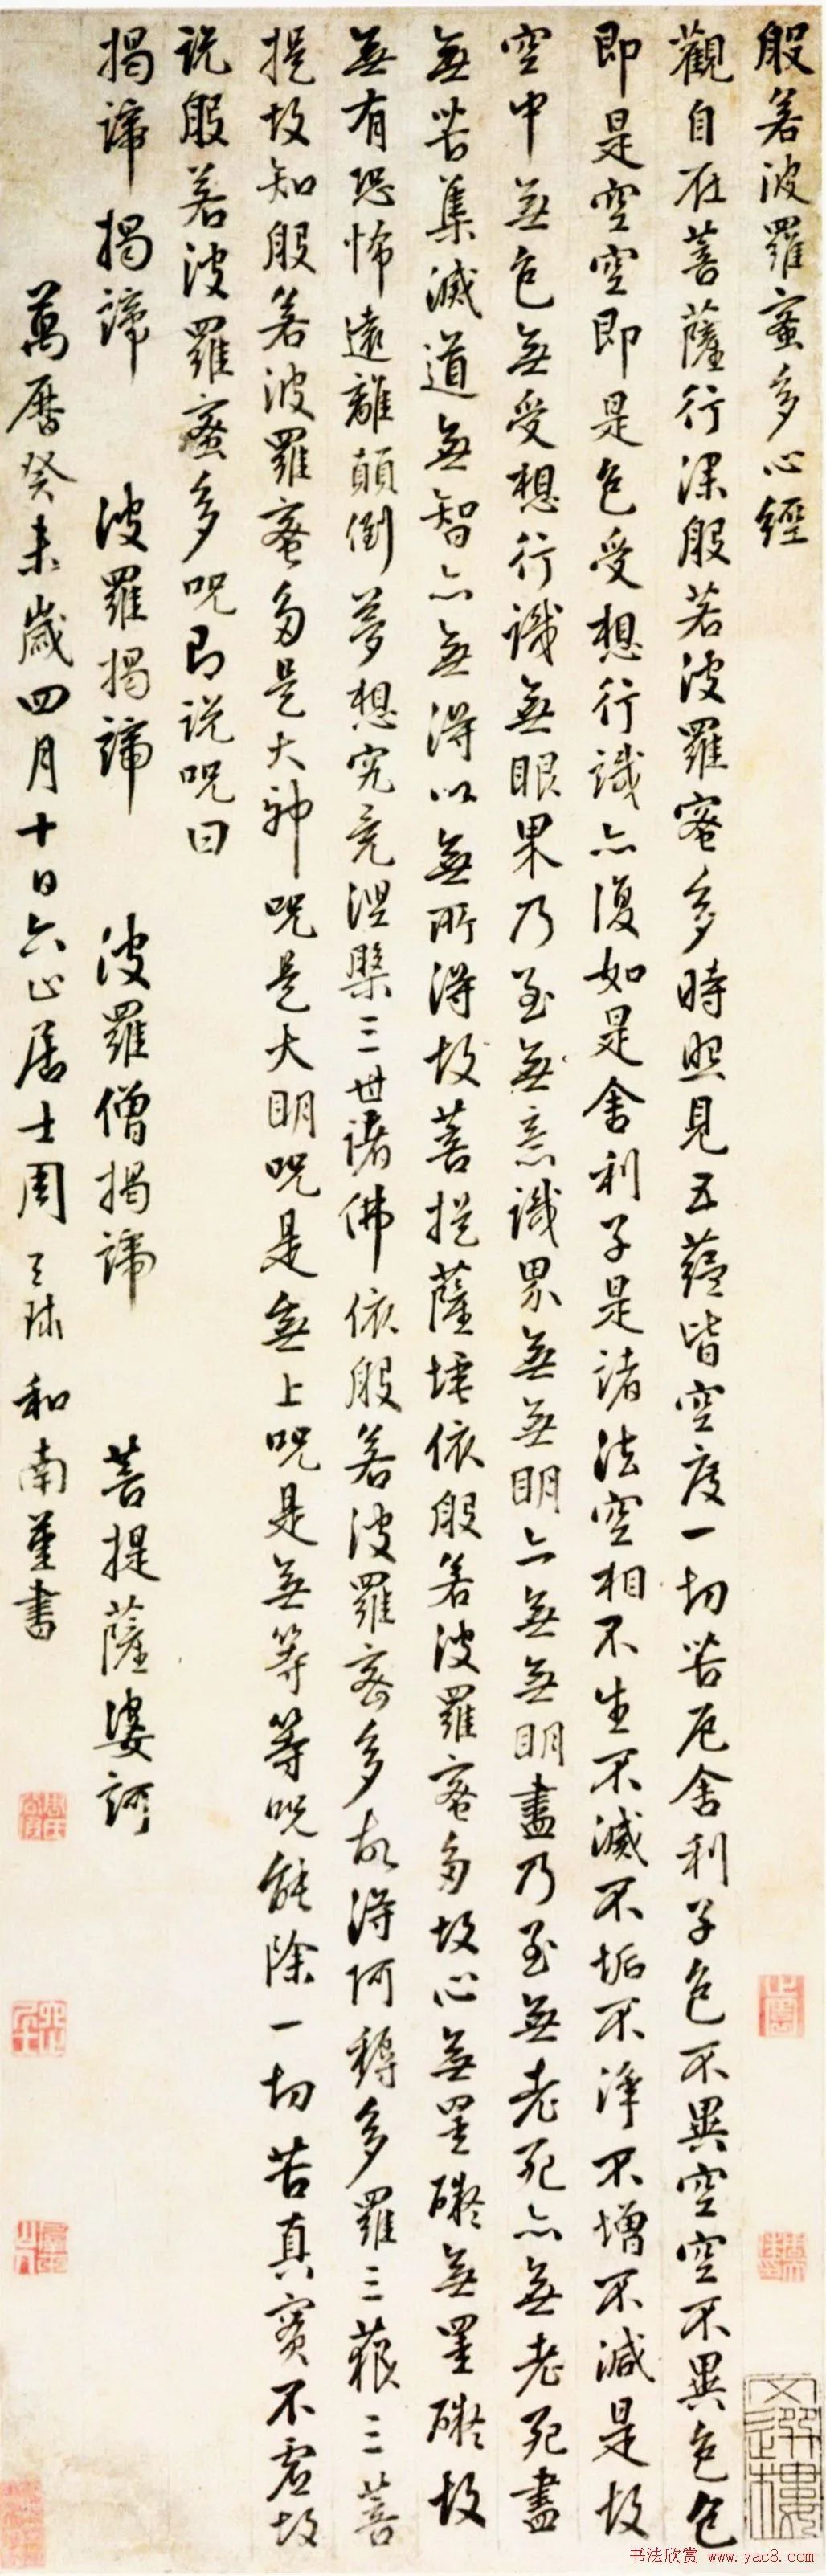 般若波羅蜜多心經
觀自在菩薩行深般若波羅蜜多時照見五蘊皆空度一切苦厄舍利子色不異空空不異色色
即是空空即是色受想行識亦復如是舍利子是諸法空相不生不滅不垢不淨不增不減是故
空中無色無受想行識無眼界乃至無意識界無無明亦無無明盡乃至無老死亦無老死盡
無苦集滅道無智亦無得以無所得故菩提薩埵依般若波羅蜜多故心無罣礙無罣礙故
無有恐怖遠離顛倒夢想究竟涅槃三世諸佛依般若波羅蜜多故得阿耨多羅三藐三菩
提故知般若波羅蜜多是大神呪是大明呪是無上呪是無等等呪能除一切苦真實不虛故
說般若波羅蜜多呪即說呪曰
揭諦揭諦 波羅揭諦 波羅僧揭諦 菩提薩婆訶
萬曆癸未歲四月十日六止居士周天球和南堇書
文選樓
书法欣赏 www.yac8.com